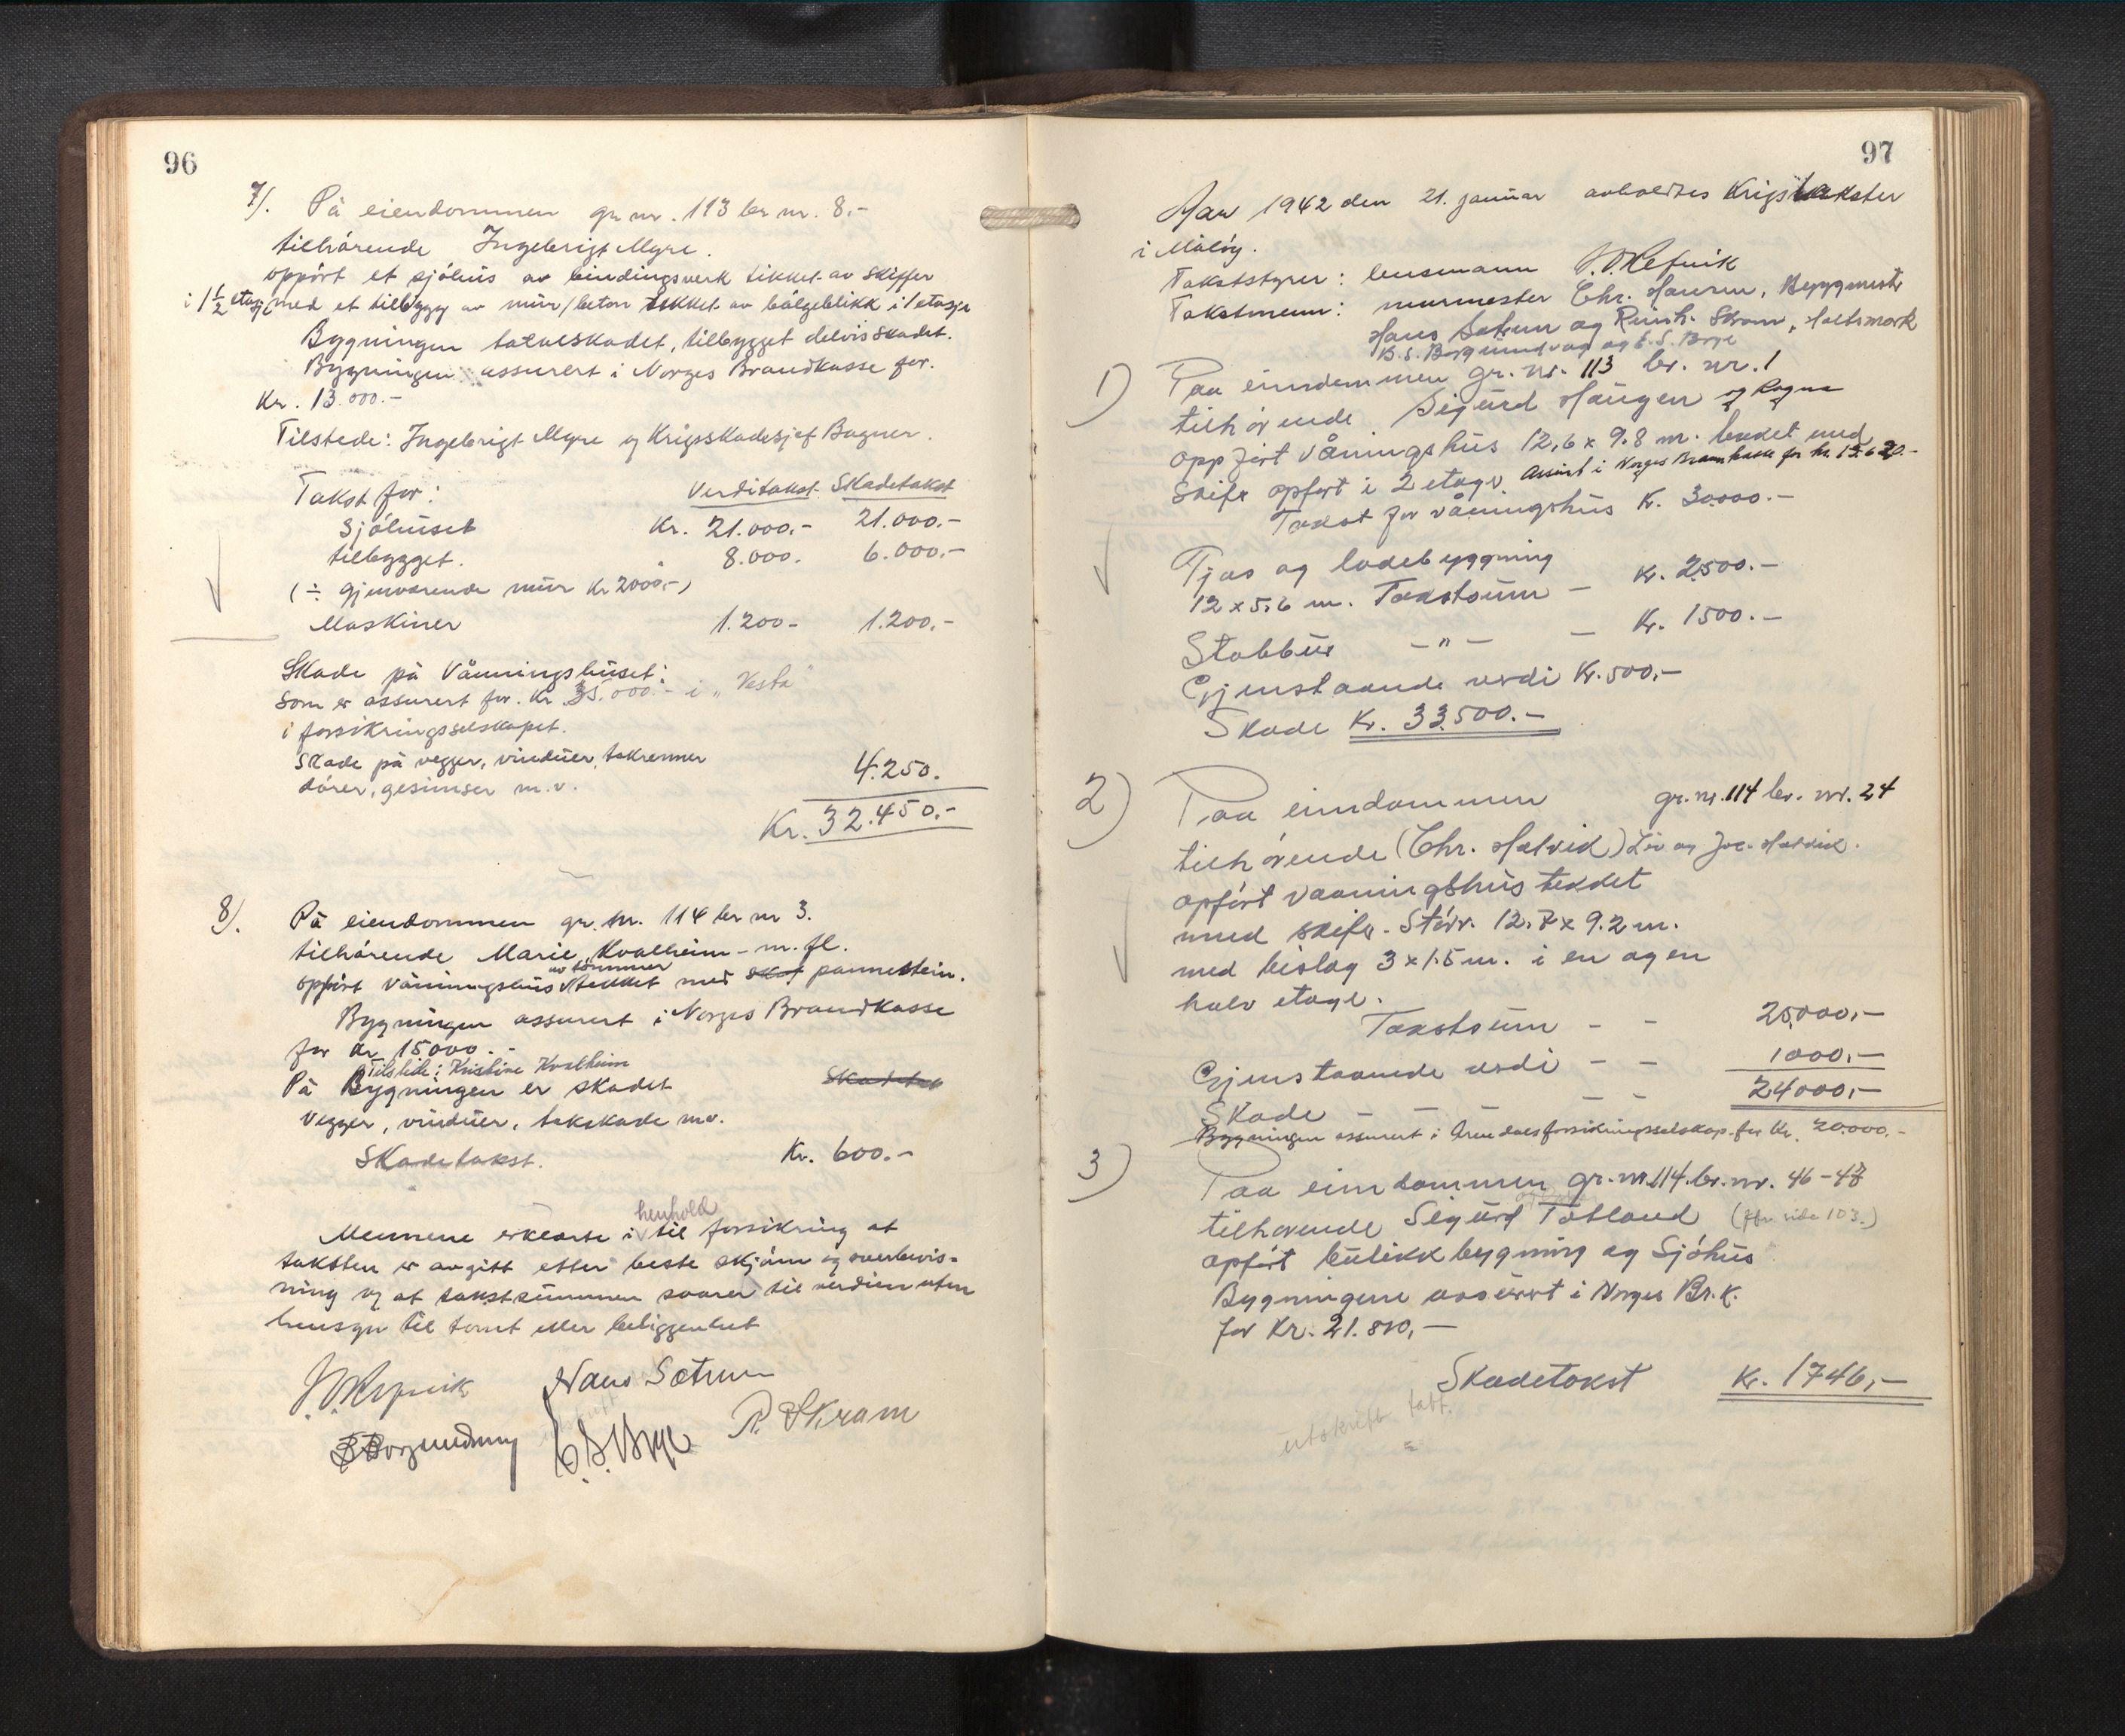 96
7). På eiendommen gr nr. 113 br nr. 8.-
tilhörende Ingebrigt Myre.
oppört et sjöhus av bindingsverk tekket av skiffer
i 1½ etasje med et tilbygg av mur/beton tekket av bölgeblikk i 1 etasje
Bygningen totalskadet, tilbygget delvis skadet.
Bygningen assurert i Norges Brandkasse for.
Kr. 13.000.-
Tilstede: Ingebrigt Myre og Krigsskadesjef Bagner.
Takst for: Verditakst. Skadetakst
Sjöhuset Kr. 21.000.- 21.000.-
tilbygget. 8.000. 6.000.-
(÷ gjenværende mur kr 2000.-)
Maskiner 1.200- 1.200.-
Skade på Våningshuset:
som er assurert for. Kr. 35.000.- i „Vesta"
i forsikringsselskapet.
Skade på vegger, vinduer, takrenner
dörer, gesimser m.v. 4.250.
Kr. 32.450.-
8). På eiendommen gr. nr. 114 br nr 3.
tilhörende Marie Kvalheim - m. fl.
av tömmer
oppfört våningshus tekket med skif pannestein.
Bygningen assurert i Norges Brandkasse
for kr 15000.-
Tilstede: Kristine Kvalheim
På Bygningen er skadet Skadetak
vegger, vinduer, takskade mv.
Skadetakst. Kr. 600.-
henhold
Mennene erklærte i til forsikring at
taksten er avgitt etter beste skjönn og overbevis-
ning og at takstsummen svarer til verdien uten
hensyn til tomt eller beliggenhet
Hans Sætren
R. Skram
97
Aar 1942 den 21. januar avholdtes Krigstakster
i Måløy.
Takststyrer: lensmann J. O. Refvik
Takstmenn: murmester Chr. Hauren, Byggmestr
Hans Sætren og Reinh. Skram, Holtsmark
B.S. Borgundvåg og E. S. Brye
1) Paa eiendommen gr. nr. 113 br. nr. 1
tilhörende Sigurd Haugen og Ragna
oppfört våningshus 12,6 x 9.8 m. tekket med
skifer opfört i 2 etager. Assurert i Norges Brannkasse for kr. 15.620.-
Takst for våningshus Kr. 30000.-
Fjøs og ladebyggning
12 x 5,6 m. Takstsum - Kr. 2500.-
Stabbur -"- - Kr. 1500.-
Gjenstaaende verdi Kr. 500,-
Skade Kr. 33500.-
2) Paa eiendommen gr. nr. 114 br. nr. 24
tilhörende (Chr. Halvik) Liv og Joe. Halvik.
opfört vaaningshus tekket
med skifer. Störr. 12.7 x 9.2 m.
med bislag 3 x 1.5 m. i en og en
halv etage.
Takstsum - - 25000,-
Gjenstaaende verdi - - 1000,-
Skade - - - - 24000,-
Bygningen assurert i Arendals forsikringsselskap for kr. 20.000.-
3) Paa eiendommen gr. nr. 114. br. nr. 46-48
tilhörende Sigurd Totland (jfr. side 103.)
opfört butikkbygning og Sjöhus
Bygningene assurert i Norges Br.k.
for Kr. 21.810,-
Skadetakst Kr. 1746,-
utskrift tatt.